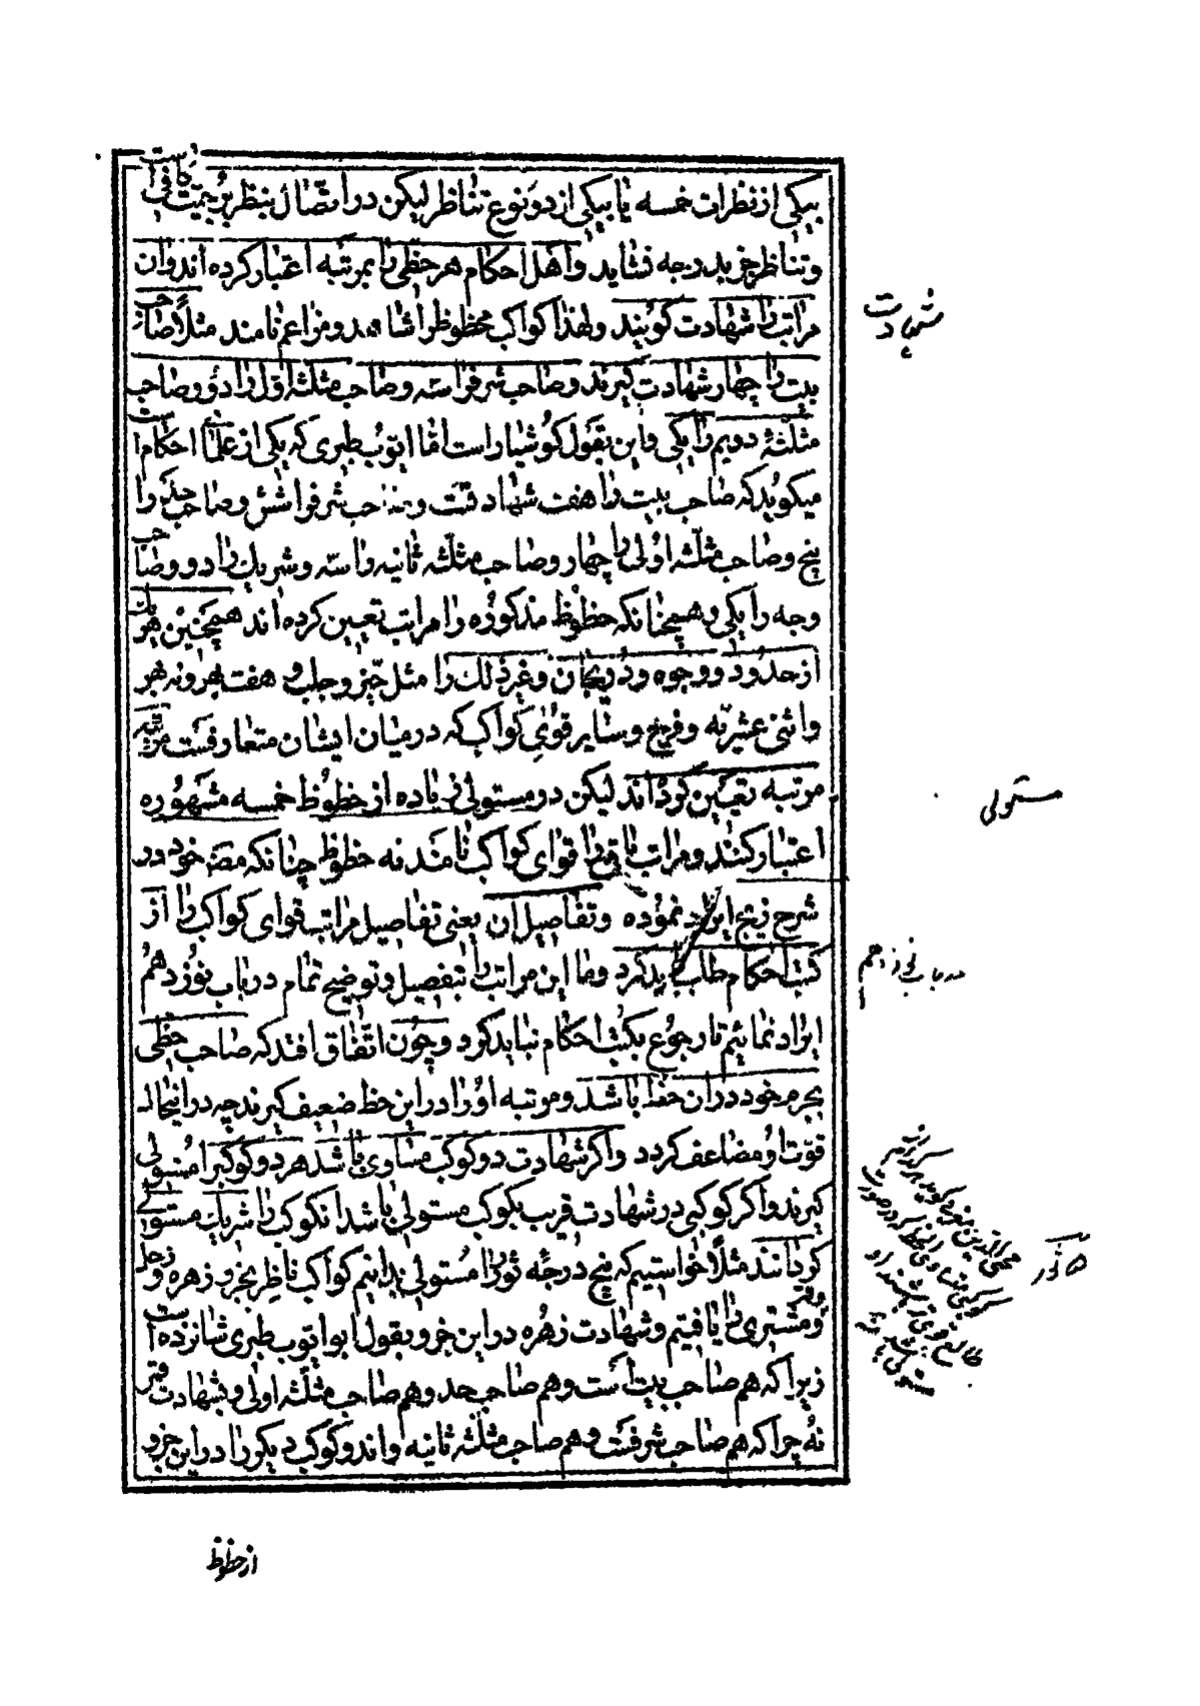 بیکی از نظرات خمسه یا بیکی از دو نوع تناظر لیکن در اتصال بنظر بر جهت کافی است
و تناظر جز بدرجه نشاید و اهل احکام هر حظی را بمرتبه اعتبار کرده اند و آن
مراتب را شهادت گویند و لهذا کواکب محظوظ را شاهد و مزاعم نامند مثلاً صاحب
بیت را چهار شهادت گیرند و صاحب شرف را سه و صاحب مثلثه اول را دو و صاحب
مثلثهٔ دویم را یکی و این بقول کوشیار است اما ایوب طبری که یکی از علمای احکام است
میگوید که صاحب بیت را هفت شهادتست و صاحب شرف را شش و صاحب حد را
پنج و صاحب مثلثه اولی را چهار و صاحب مثلثه ثانیه را سه و شریک را دو و صاحب
وجه را یکی و همچنانکه حظوظ مذکوره را مراتب تعیین کرده اند همچنین هر یک
از حدود و وجوه و دریجان و غیر ذلک را مثل حیز و جلب و هفت بهر و نه بهر
و اثنی عشریه و فرح و سایر قوای کواکب که در میان ایشان متعارفست مرتبه
مرتبه تعیین کرده اند لیکن در مستولی زیاده از حظوظ خمسه مشهوره
اعتبار کنند و مراتب باقی را قوای کواکب نامند نه حظوظ چنانکه مصنف خود در
شرح زیج ایراد نموده و تفاصیل آن یعنی تفاصیل مراتب قوای کواکب را از
کتب احکام طلب باید کرد و ما این مراتب را بتفصیل و توضیح تمام در باب نوزدهم
ایراد نمائیم تا رجوع بکتب احکام نباید کرد و چون اتفاق افتد که صاحب حظی
بجرم خود در آن حظ باشد و مرتبه او را در این حظ ضعیف گیرند چه در اینحال
قوت او مضاعف گردد و اگر شهادت دو کوکب مساوی باشد هر دو کوکب را مستولی
گیرند و اگر کوکبی در شهادت قریب بکوکب مستولی باشد آنکوکب را شریک مستولی
گردانند مثلاً خواستیم که پنج درجه ثور را مستولی بدانیم کواکب ناظر بجزو زهره و زحل
و قمر و مشتری را یافتیم و شهادت زهره در این جزو بقول ابو ایوب طبری شانزده است
زیرا که هم صاحب بیت است و هم صاحب حد و هم صاحب مثلثه اولی و شهادت قمر
نه چرا که هم صاحب شرفست و هم صاحب مثلثه ثانیه و آن دو کوکب دیگر را در این جزو
از حظوظ
شهادت
مستولی
در باب نوزدهم
۵ ثور